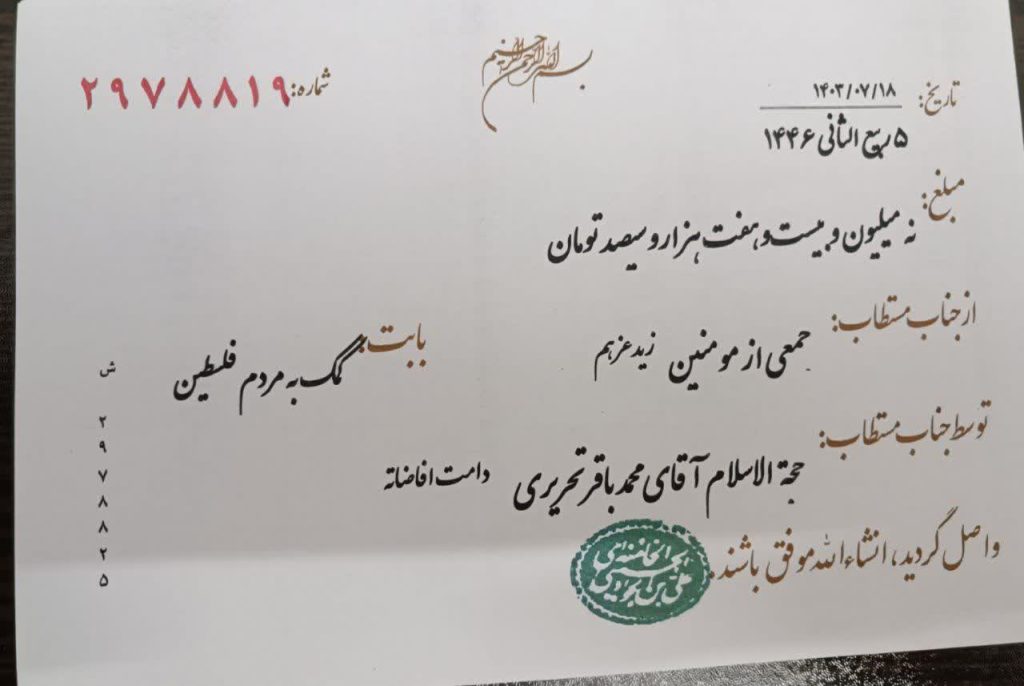 بسم الله الرحمن الرحیم
تاریخ: ۱۴۰۳/۰۷/۱۸
شماره: ۲۹۷۸۸۱۹
۵ ربیع الثانی ۱۴۴۶
مبلغ:
نه میلیون و بیست و هفت هزار و سیصد تومان
از جناب مستطاب:
جمعی از مومنین زید عزهم
بابت:
کمک به مردم فلسطین
توسط جناب مستطاب:
حجة الاسلام آقای محمد باقر تحریری دامت افاضاته
واصل گردید، انشاءالله موفق باشند.
ش
۲
۹
۷
۸
۸
۲
۵